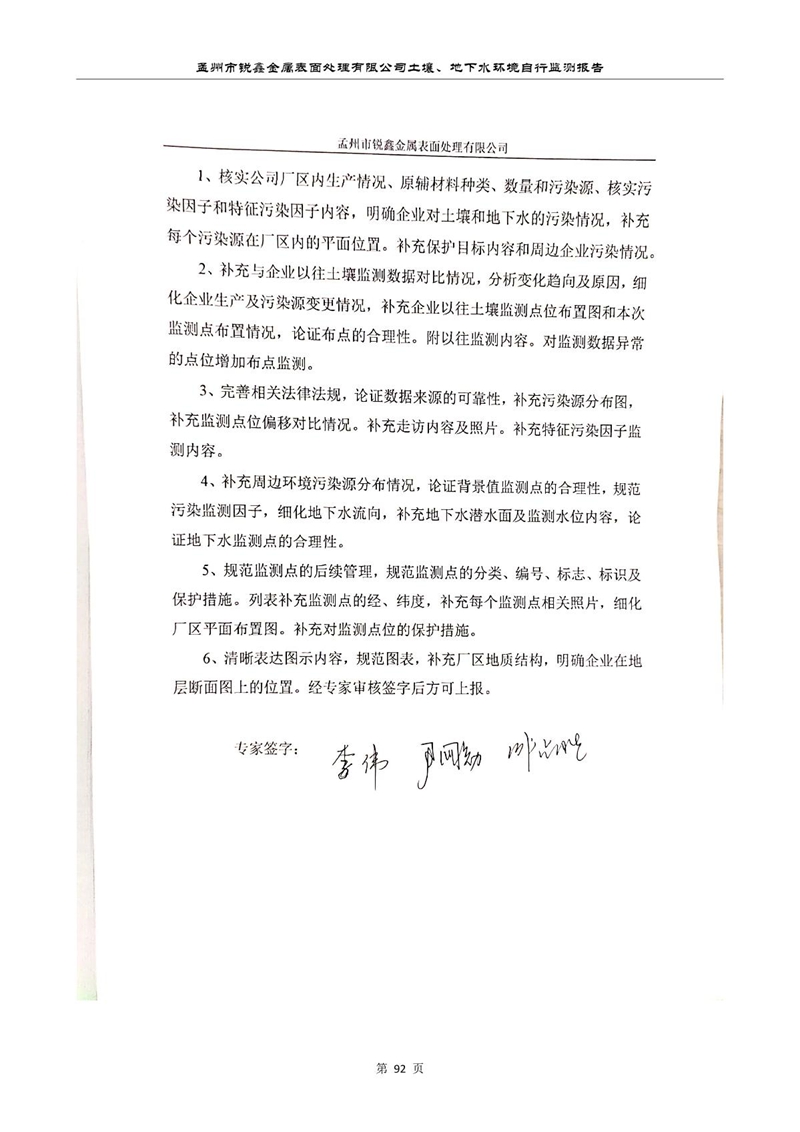 孟州市锐鑫金属表面处理有限公司土壤、地下水环境自行监测报告
孟州市锐鑫金属表面处理有限公司
1、核实公司厂区内生产情况、原辅材料种类、数量和污染源、核实污
染因子和特征污染因子内容，明确企业对土壤和地下水的污染情况，补充
每个污染源在厂区内的平面位置。补充保护目标内容和周边企业污染情况。
2、补充与企业以往土壤监测数据对比情况，分析变化趋向及原因，细
化企业生产及污染源变更情况，补充企业以往土壤监测点位布置图和本次
监测点布置情况，论证布点的合理性。附以往监测内容。对监测数据异常
的点位增加布点监测。
3、完善相关法律法规，论证数据来源的可靠性，补充污染源分布图，
补充监测点位偏移对比情况。补充走访内容及照片。补充特征污染因子监
测内容。
4、补充周边环境污染源分布情况，论证背景值监测点的合理性，规范
污染监测因子，细化地下水流向，补充地下水潜水面及监测水位内容，论
证地下水监测点的合理性。
5、规范监测点的后续管理，规范监测点的分类、编号、标志、标识及
保护措施。列表补充监测点的经、纬度，补充每个监测点相关照片，细化
厂区平面布置图。补充对监测点位的保护措施。
6、清晰表达图示内容，规范图表，补充厂区地质结构，明确企业在地
层断面图上的位置。经专家审核签字后方可上报。
专家签字：李伟
第 92 页